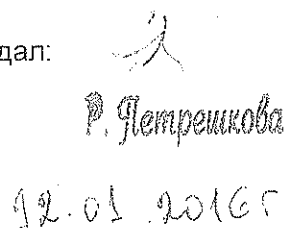 дал:
Р. Петрешкова
12.01.2016г